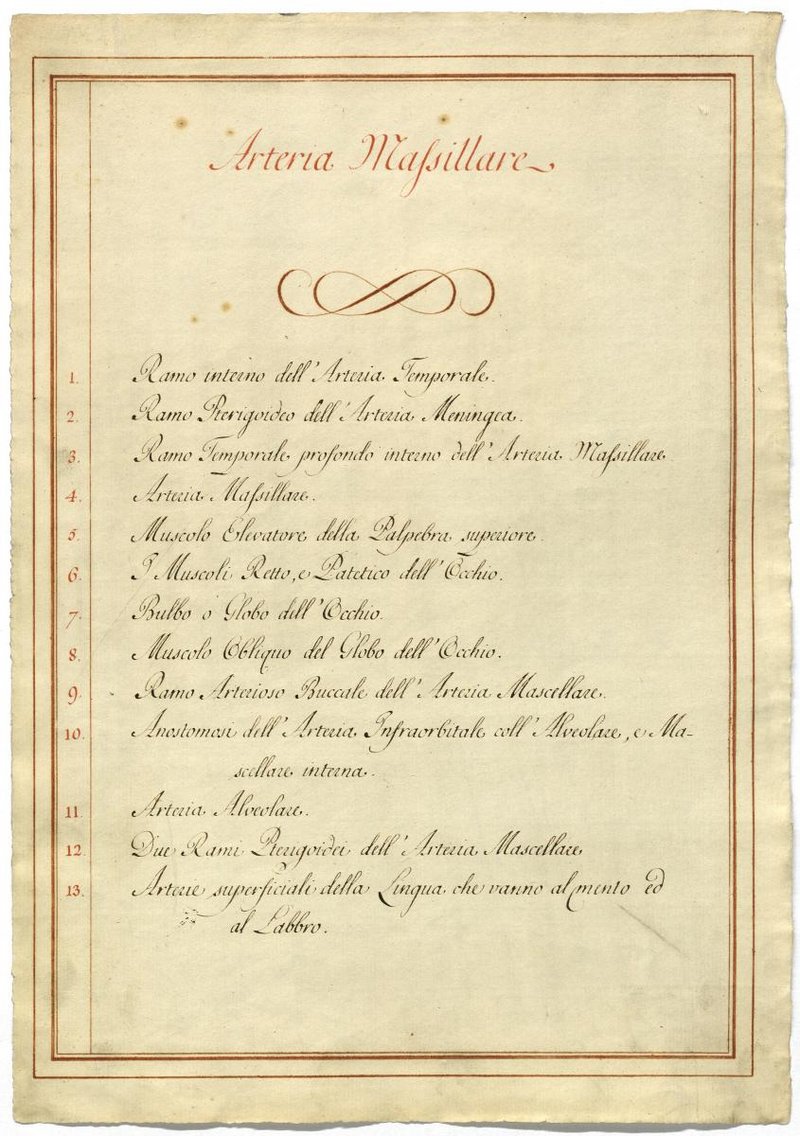 Arteria Maſsillare
1. Ramo interno dell'Arteria Temporale.
2. Ramo Pterigoideo dell'Arteria Meningea.
3. Ramo Temporale profondo interno dell'Arteria Maſsillare
4. Arteria Maſsillare.
5. Muscolo Elevatore della Palpebra superiore.
6. I Muscoli Retto, e Patetico dell'Occhio.
7. Bulbo o Globo dell'Occhio.
8. Muscolo Obliquo del Globo dell'Occhio.
9. Ramo Arterioso Buccale dell'Arteria Mascellare.
10. Anostomosi dell'Arteria Infraorbitale coll'Alveolare, e Ma-
scellare interna.
11. Arteria Alveolare.
12. Due Rami Pterigoidei dell'Arteria Mascellare
13. Arterie superficiali della Lingua che vanno al mento ed
al Labbro.